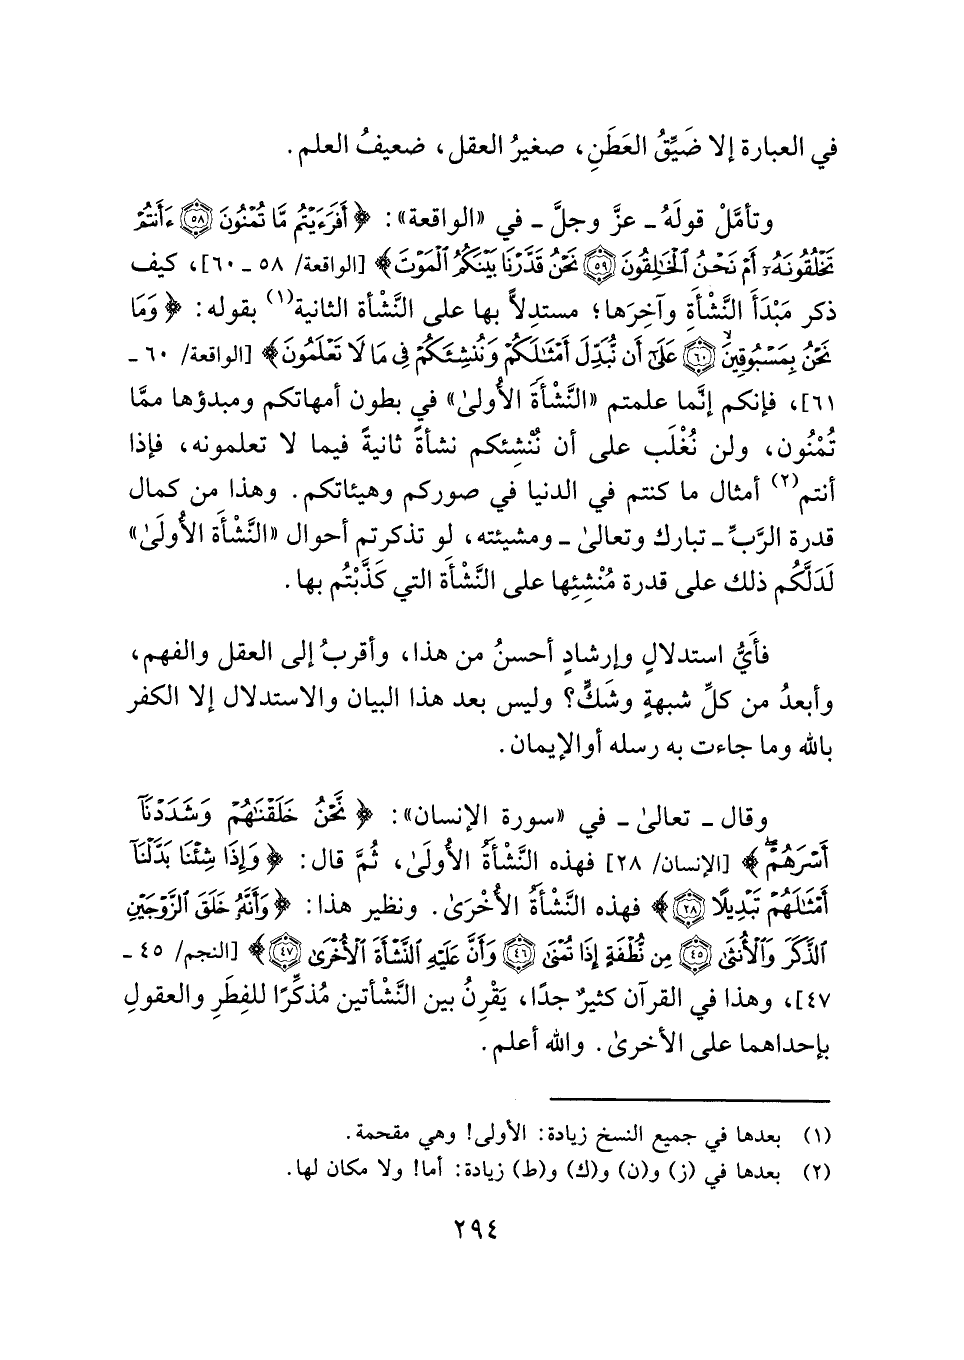 في العبارة إلا ضَيِّقُ العَطَنِ، صغيرُ العقل، ضعيفُ العلم.
وتأمَّلْ قولَهُ ـ عزَّ وجلَّ ـ في «الواقعة»: ﴿أَفَرَءَيْتُم مَّا تُمْنُونَ ٥٨ ءَأَنتُمْ
تَخْلُقُونَهُۥٓ أَمْ نَحْنُ ٱلْخَٰلِقُونَ ٥٩ نَحْنُ قَدَّرْنَا بَيْنَكُمُ ٱلْمَوْتَ﴾ [الواقعة/ ٥٨ ـ ٦٠]، كيف
ذكر مَبْدَأَ النَّشْأَةِ وآخِرَها؛ مستدِلاًّ بها على النَّشْأة الثانية(١) بقوله: ﴿وَمَا
نَحْنُ بِمَسْبُوقِينَ ٦٠ عَلَىٰٓ أَن نُّبَدِّلَ أَمْثَٰلَكُمْ وَنُنشِئَكُمْ فِى مَا لَا تَعْلَمُونَ﴾ [الواقعة/ ٦٠ ـ
٦١]، فإنكم إنَّما علمتم «النَّشْأةَ الأُولىٰ» في بطون أمهاتكم ومبدؤها ممَّا
تُمْنُون، ولن نُغْلَب على أن نُنْشِئكم نشأةً ثانيةً فيما لا تعلمونه، فإذا
أنتم(٢) أمثال ما كنتم في الدنيا في صوركم وهيئاتكم. وهذا من كمال
قدرة الرَّبِّ ـ تبارك وتعالىٰ ـ ومشيئته، لو تذكرتم أحوال «النَّشْأَة الأُولَىٰ»
لَدَلَّكُم ذلك على قدرة مُنْشِئِها على النَّشْأة التي كَذَّبْتُم بها.
فأَيُّ استدلالٍ وإرشادٍ أحسنُ من هذا، وأقربُ إلى العقل والفهم،
وأبعدُ من كلِّ شبهةٍ وشَكٍّ؟ وليس بعد هذا البيان والاستدلال إلا الكفر
بالله وما جاءت به رسله أوالإيمان.
وقال ـ تعالىٰ ـ في «سورة الإنسان»: ﴿نَّحْنُ خَلَقْنَٰهُمْ وَشَدَدْنَآ
أَسْرَهُمْ﴾ [الإنسان/ ٢٨] فهذه النَّشْأَةُ الأُولَىٰ، ثُمَّ قال: ﴿وَإِذَا شِئْنَا بَدَّلْنَآ
أَمْثَٰلَهُمْ تَبْدِيلًا ٢٨﴾ فهذه النَّشْأَةُ الأُخْرَىٰ. ونظير هذا: ﴿وَأَنَّهُۥ خَلَقَ ٱلزَّوْجَيْنِ
ٱلذَّكَرَ وَٱلْأُنثَىٰ ٤٥ مِن نُّطْفَةٍ إِذَا تُمْنَىٰ ٤٦ وَأَنَّ عَلَيْهِ ٱلنَّشْأَةَ ٱلْأُخْرَىٰ ٤٧﴾ [النجم/ ٤٥ ـ
٤٧]، وهذا في القرآن كثيرٌ جدًا، يَقْرِنُ بين النَّشْأتين مُذكِّرًا للفِطَرِ والعقولِ
بإحداهما على الأخرىٰ. والله أعلم.
(١) بعدها في جميع النسخ زيادة: الأولى! وهي مقحمة.
(٢) بعدها في (ز) و(ن) و(ك) و(ط) زيادة: أما! ولا مكان لها.
٢٩٤